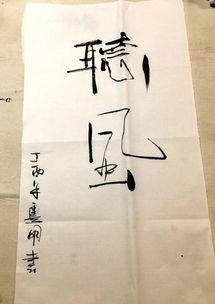 聽風
丁酉年 明書